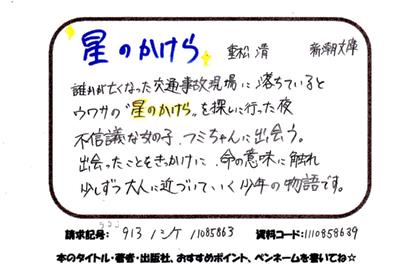 星のかけら 重松清 新潮文庫
誰かが亡くなった交通事故現場に落ちていると
ウワサの"星のかけら"を探しに行った夜
不信議な女の子、フミちゃんに出会う。
出会ったことをきっかけに、命の意味に触れ
少しずつ大人に近づいていく少年の物語です。
請求記号: 913 / シケ / 1085863 資料コード:1110858639
本のタイトル・著者・出版社、おすすめポイント、ペンネームを書いてね☆